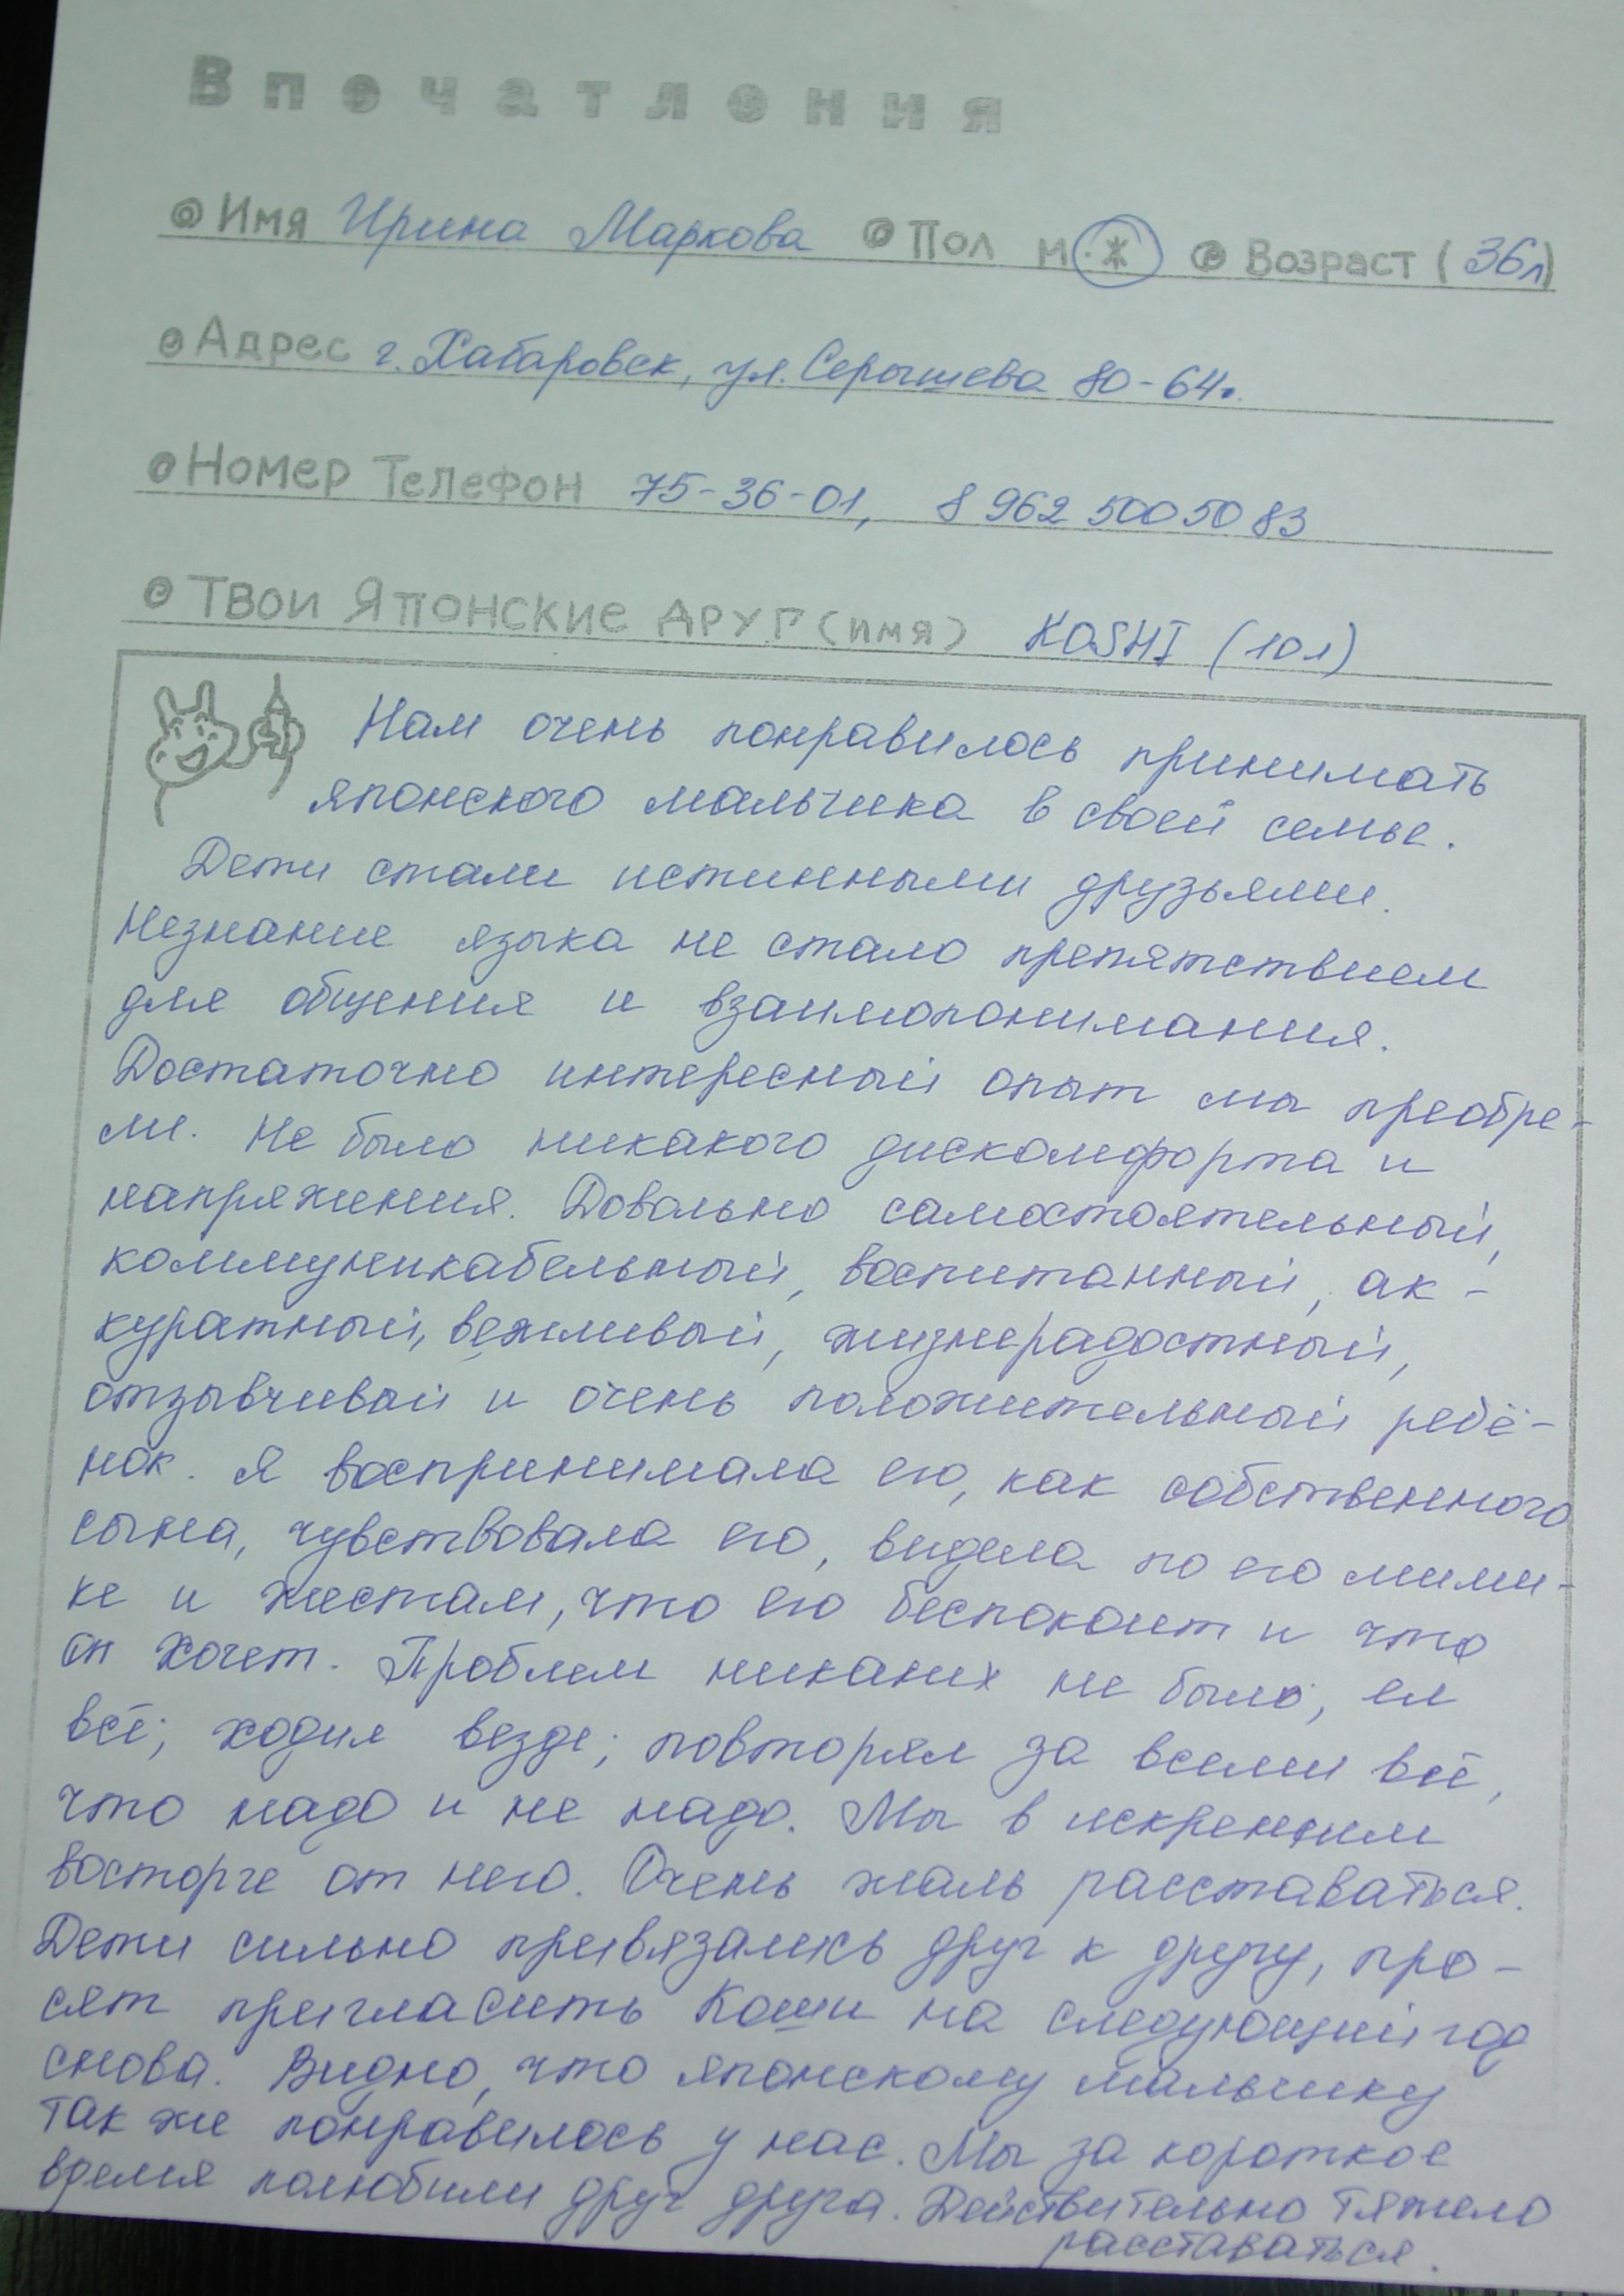 Впечатления
Имя Ирина Маркова Пол м.ж Возраст (36л)
Адрес г. Хабаровск, ул. Серышева 80-64.
Номер Телефон 75-36-01, 8 962 500 50 83
Твои Японские друг (имя) KOSHI (10л)
Нам очень понравилось принимать
японского мальчика в своей семье.
Дети стали истинными друзьями.
Незнание языка не стало препятствием
для общения и взаимопонимания.
Достаточно интересный опыт мы преобре-
ли. Не было никакого дискомфорта и
напряжения. Довольно самостоятельный,
коммуникабельный, воспитанный, ак-
куратный, вежливый, жизнерадостный,
отзывчивый и очень положительный ребё-
нок. Я воспринимала его, как собственного
сына, чувствовала его, видела по его мими-
ке и жестам, что его беспокоит и что
он хочет. Проблем никаких не было; ел
всё; ходил везде; повторял за всеми всё,
что надо и не надо. Мы в искреннем
восторге от него. Очень жаль расставаться.
Дети сильно привязались друг к другу, про-
сят пригласить Коши на следующий год
снова. Видно, что японскому мальчику
так же понравилось у нас. Мы за короткое
время полюбили друг друга. Действительно тяжело
расставаться.